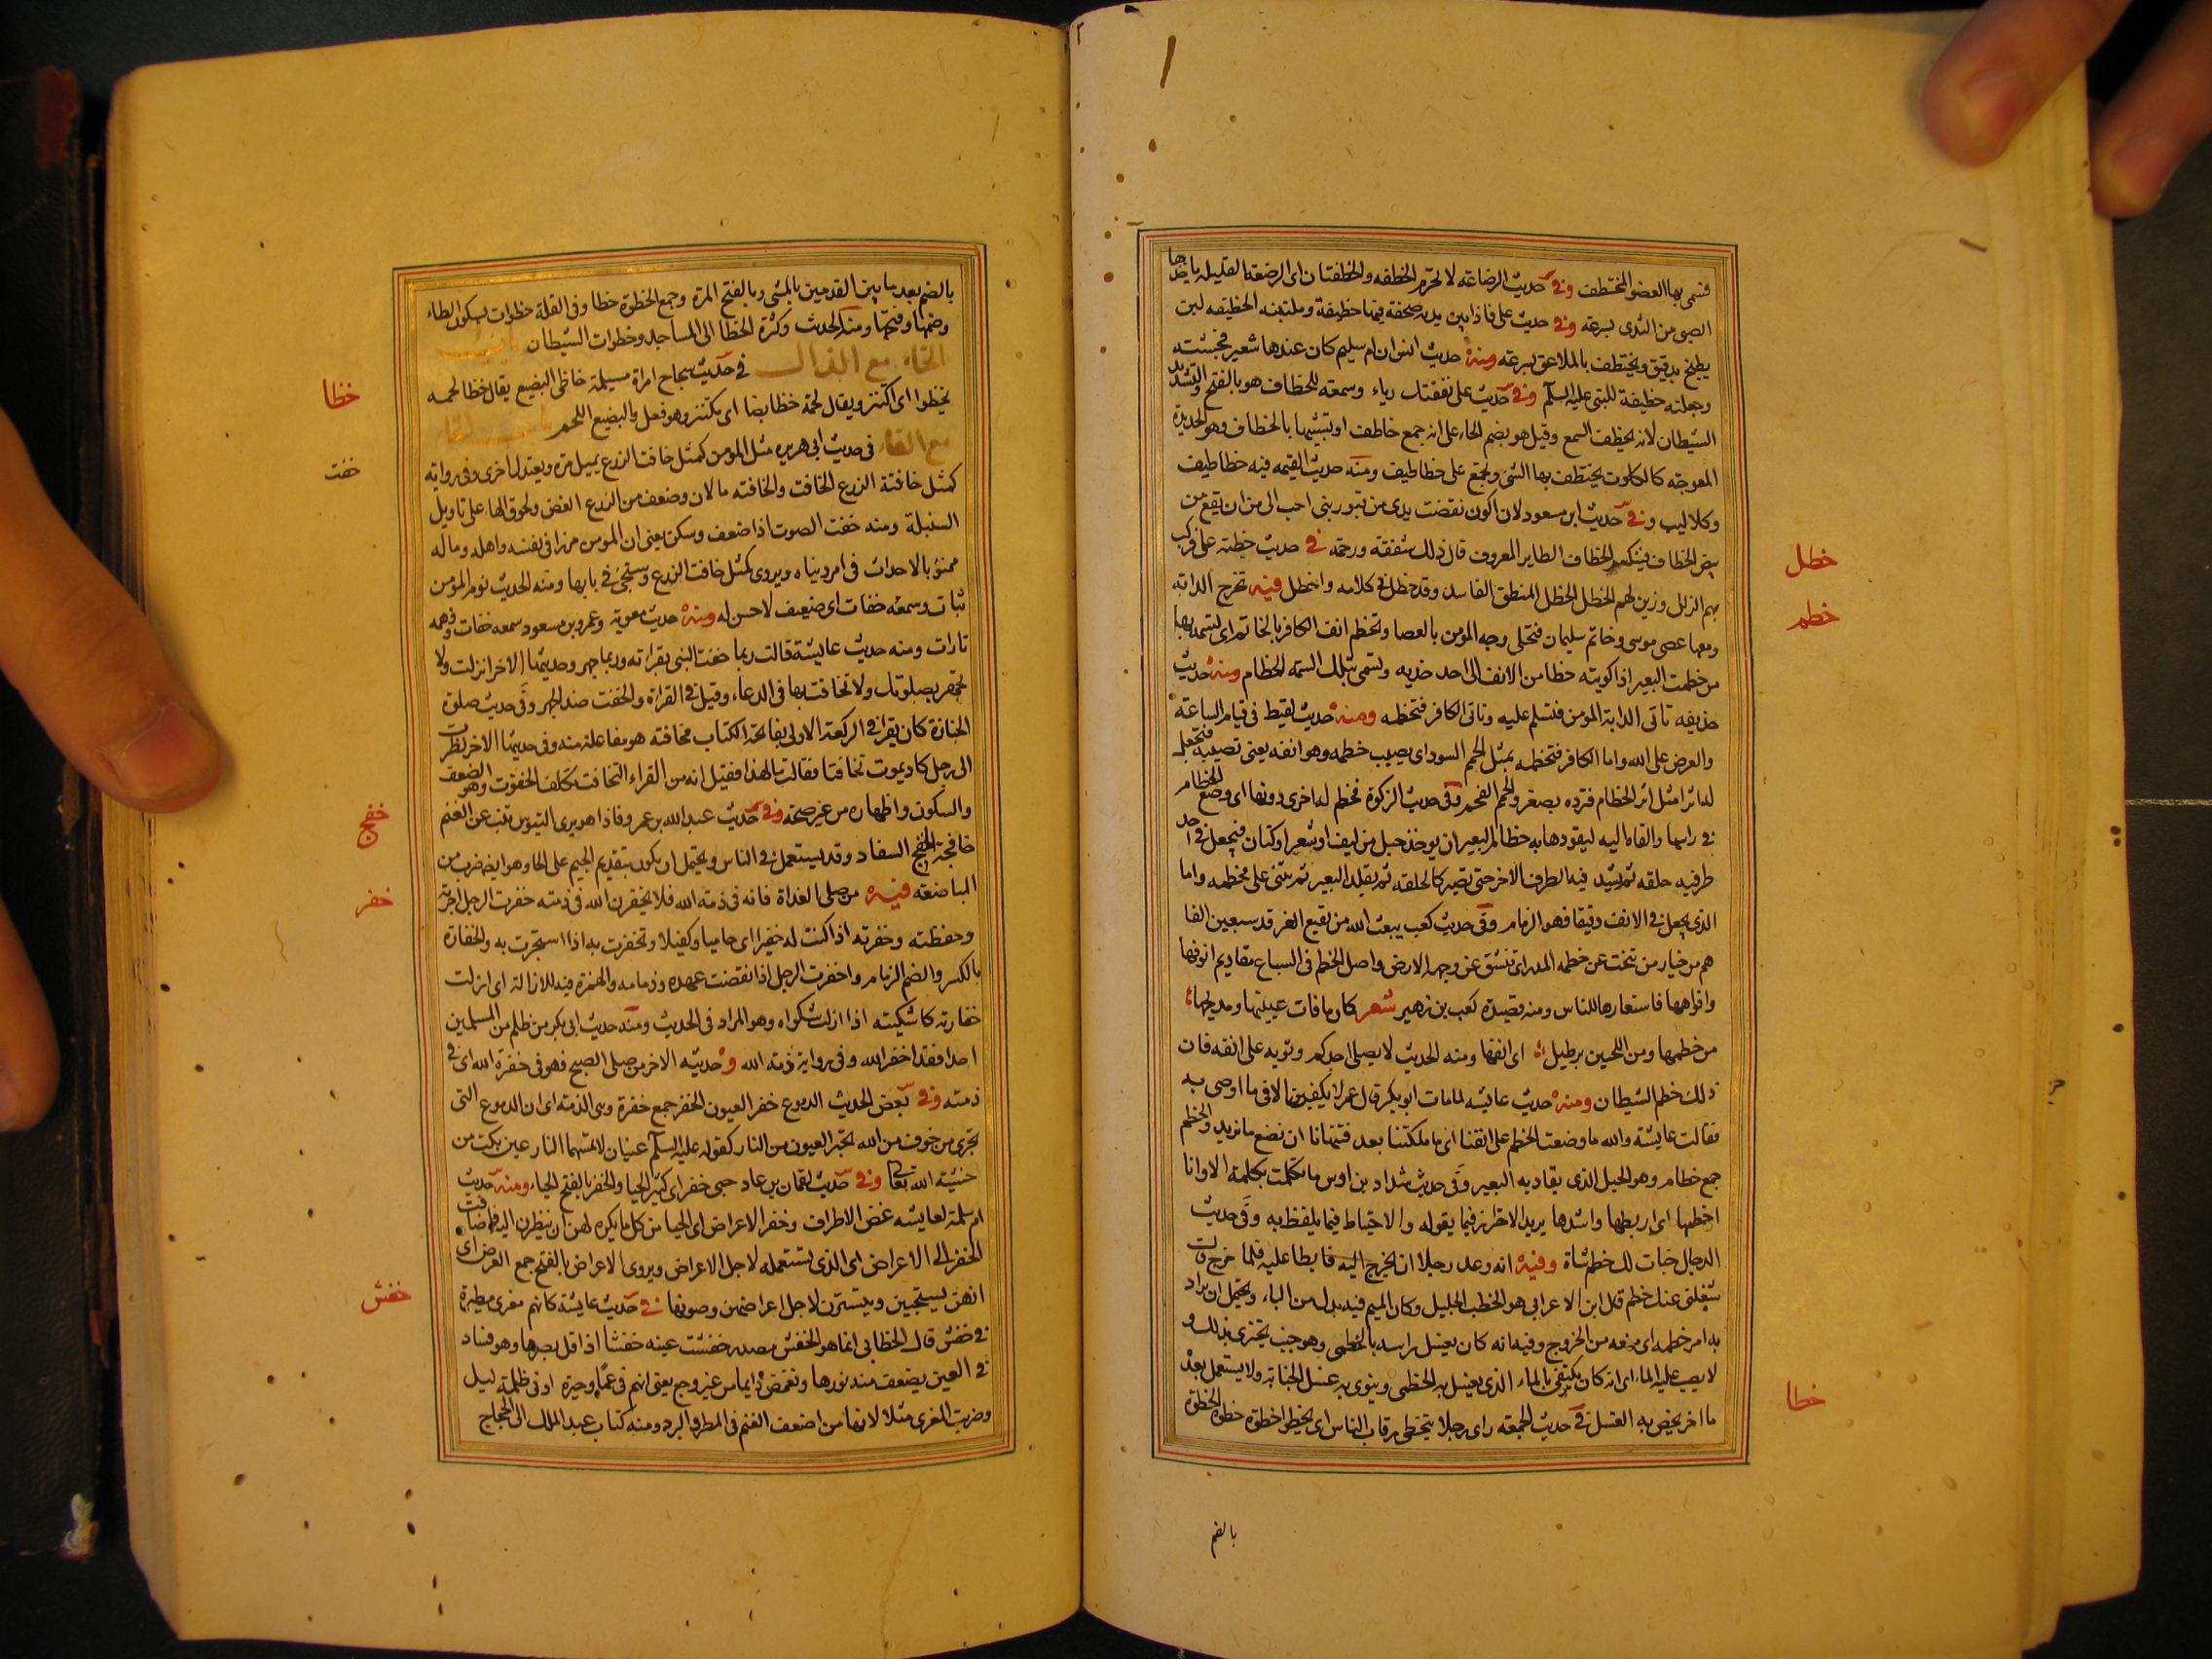 فسمى بها العضو المختطف وفي حديث الرضاعة لا تحرم الخطفة والخطفتان اى الرضعة القليلة ياخذها
الصبى من الثدى بسرعة وفي حديث على فاذا بين يديه صحفة فيها خطيفة وملبنة الخطيفه لبن
يطبخ بدقيق ويختطف بالملاعق بسرعة ومنه حديث انس ان ام سليم كان عندها شعير فجشته
وجعلته خطيفة للنبى عليه السلم وفي حديث على نفقتك رياء وسمعة للخطاف هو بالفتح والتشديد
الشيطان لانه يخطف السمع وقيل هو بضم الخاء على انه جمع خاطف او تشبيها بالخطاف وهو الحديدة
المعوجة كالكلوب يختطف بها الشئ ويجمع على خطاطيف ومنه حديث القيمه فيه خطاطيف
وكلاليب وفي حديث ابن مسعود لان اكون نفضت يدى من قبور بنى احب الى من ان يقع من
بيض الخطاف فينكسر الخطاف الطاير المعروف قال ذلك شفقة ورحمة في حديث خطبة على فركب
بهم الزلل وزين لهم الخطل الخطل المنطق الفاسد وقد خطل في كلامه واخطل فيه تخرج الدابة
ومعها عصى موسى وخاتم سليمان فتحلى وجه المومن بالعصا وتخطم انف الكافر بالخاتم اى تسمه بها
من خطمت البعير اذا كويته خطا من الانف الى احد خديه وتسمى تلك السمة الخطام ومنه حديث
حذيفه تاتى الدابة المومن فتسلم عليه وتاتى الكافر فتخطمه ومنه حديث لقيط فى قيام الساعة
والعرض على الله واما الكافر فتخطمه بمثل الحمم السود اى يصيب خطمه وهو انفه يعنى تصيبه فتجعل
له اثرا مثل اثر الخطام فترده بصغر والحمم الفحم وفى حديث الزكوة فخطم له اخرى دونها اى وضع الخطام
فى راسها والقاه اليه ليقودها به خطام البعير ان يوخذ حبل من ليف او شعر او كتان فيجعل في احد
طرفيه حلقه ثم يشد فيه الطرف الاخر حتى تصير كالحلقه ثم يقلد البعير ثم يثنى على مخطمه واما
الذى يجعل في الانف دقيقا فهو الزمام وفى حديث كعب يبعث الله من بقيع الغرقد سبعين الفا
هم من خيار من تنحت عن خطمه المدر اى تنشق عن وجهه الارض واصل الخطم فى السباع مقاديم انوفها
وافواهها فاستعارها للناس ومنه قصيدة كعب بن زهير شعر كان ما فات عينيها ومذبحها
من خطمها ومن اللحيين برطيل اى انفها ومنه الحديث لا يصلى احدكم وثوبه على انفه فان
ذلك خطم الشيطان ومنه حديث عايشه لما مات ابو بكر قال عمر لا يكفن الا فى ما اوصى به
فقالت عايشة والله ما وضعت الخطم على انفنا اى ما ملكتنا بعد فتنهانا ان نضع ما نريد والخطم
جمع خطام وهو الحبل الذى يقاد به البعير وفى حديث شداد بن اوس ما تكلمت بكلمة الا وانا
اخطمها اى اربطها واشدها يريد الاحتراز فيما يقوله والاحتياط فيما يلفظ به وفى حديث
الدجال خبات لك خطم شاة وفيه انه وعد رجلا ان يخرج اليه فابطا عليه فلما خرج قالت
شغلنى عنك خطم قال ابن الاعرابي هو الخطب الجليل وكان الميم فيه بدل من الباء ويحتمل ان يراد
به امر خطمه اى منعه من الخروج وفيه انه كان يغسل راسه بالخطمى وهو جنب يجتزى بذلك و
لا يصب عليه الماء اى انه كان يكتفى بالماء الذى يغسل به الخطمى وينوى به غسل الجنابة ولا يستعمل بعد
ما اخر يخص به الغسل في حديث الجمعه راى رجلا يتخطى رقاب الناس اى يخطو اخطوة خطوة الخطوة
خطل
خطم
خطا
بالضم
بالضم بعد ما بين القدمين بالمشى وبالفتح المرة وجمع الخطوة خطا وفى القلة خطوات بسكون الطاء
وضمها وفتحها ومنه الحديث وكثرة الخطا الى المساجد وخطوات الشيطان
الخاء مع الذال في حديث سجاح امراة مسيلمة خاظى البضيع يقال خظا لحمه
يخظوا اى اكتنز ويقال لحمة خظا بظا اى مكتنز وهو فعل والبضيع اللحم
مع الفاء فى حديث ابى هريره مثل المومن كمثل خافت الزرع يميل مرة ويعتدل اخرى وفى رواية
كمثل خافتة الزرع الخافت والخافته ما لان وضعف من الزرع الغض ولحوق الها على تاويل
السنبلة ومنه خفت الصوت اذا ضعف وسكن يعنى ان المومن مرزا فى نفسه واهله وماله
ممنو بالاحداث فى امر دنياه ويروى كمثل خافت الزرع وستجئ فى بابها ومنه الحديث نوم المؤمن
ثبات وسمعه خفات اى ضعيف لا حس له ومنه حديث معوية وعمرو بن مسعود سمعه خفات وفهمه
تارات ومنه حديث عايشة قالت ربما خفت النبى بقراته وربما جهر وحديثها الاخر انزلت ولا
تجهر بصلوتك ولا تخافت بها فى الدعاء وقيل فى القراة والخفت ضد الجهر وفى حديث صلوة
الجنازة كان يقرا في الركعة الاولى بفاتحة الكتاب مخافتة هو مفاعلة منه وفى حديثها الاخر نظرت
الى رجل كاد يموت تخافتا فقالت ما لهذا فقيل انه من القراء التخافت تكلف الخفوت وهو الضعف
والسكون واظهاره من غير صحة وفى حديث عبد الله بن عمرو فاذا هو يرى التيوس تنب عن الغنم
خافجة الخفج السفاد وقد يستعمل فى الناس ويحتمل ان يكون بتقديم الجيم على الخا وهو ايض ضرب من
المباضعة فيه من صلى الغداة فانه فى ذمة الله فلا يخفرن الله فى ذمته خفرت الرجل اجرته
وحفظته وخفرته اذا كنت له خفيرا اى حاميا وكفيلا وتخفرت به اذا استجرت به والخفارة
بالكسر والضم الزمام واخفرت الرجل اذا نقضت عهده وذمامه والهمزة فيه للازالة اى ازلت
خفارته كاشكيته اذا ازلت شكواه وهو المراد فى الحديث ومنه حديث ابى بكر من ظلم من المسلمين
احدا فقد اخفر الله وفى رواية ذمة الله و حديثه الاخر من صلى الصبح فهو فى خفرة الله اى فى
ذمته وفي بعض الحديث الدموع خفر العيون الخفر جمع خفرة وهى الذمة اى ان الدموع التى
تجرى من خوف من الله تجير العيون من النار كقوله عليه السلم عينان لا تمسهما النار عين بكت من
خشية الله تعالى وفي حديث لقمان بن عاد حيى خفر اى كثير الحيا والخفر بالفتح الحياء ومنه حديث
ام سلمة لعايشه غض الاطراف وخفر الاعراض اى الحيا من كل ما يكره لهن ان ينظرن اليه فاضافت
الخفر الى الاعراض اى الذى تستعمله لاجل الاعراض ويروى الاعراض بالفتح جمع العرض اى
انهن يستحيين ويتسترن لاجل اعراضهن وصونها في حديث عايشة كانهم معزى مطيرة
في خفش قال الخطابى انما هو الخفش مصدر خفشت عينه خفشا اذا قل بصرها وهو فساد
فى العين يضعف منه نورها وتغمض دايما من غير وجع يعنى انهم فى عما وحيرة او فى ظلمة ليل
وضربت المعزى مثلا لانها من اضعف الغنم فى المطر والبرد ومنه كتاب عبد الملك الى الحجاج
خظا
خفت
خفج
خفر
خفش